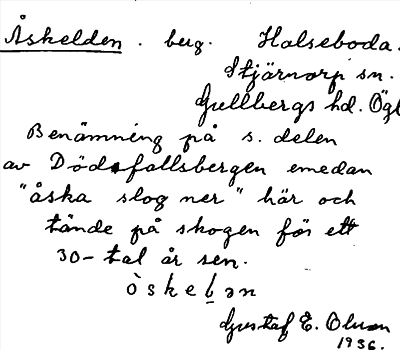 Åskelden . berg. Halseboda.
Stjärnorp sn.
Gullbergs hd. Ögl
Benämning på s. delen
av Dödsfallsbergen emedan
"åska slog ner" här och
tände på skogen för ett
30-tal år sen.
òskelən
Gustaf E. Olsson
1936.